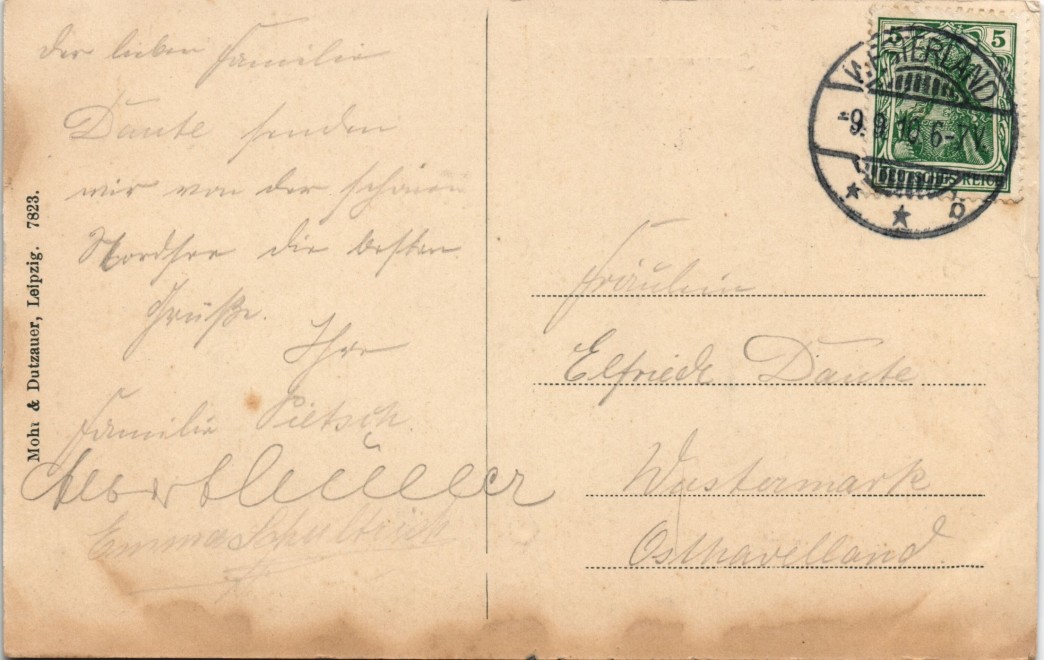 Der lieben Familie
Daute senden
wir von der schönen
Nordsee die besten
Grüße.
Ihre
Familie Pietsch.
Albert Müller
Emma
Mohr & Dutzauer, Leipzig. 7823.
5 5
DEUTSCHES REICH
WESTERLAND
-9.9.10 6-7V.
* * b
Fräulein
Elfriede Daute
Wustermark
Osthavelland.